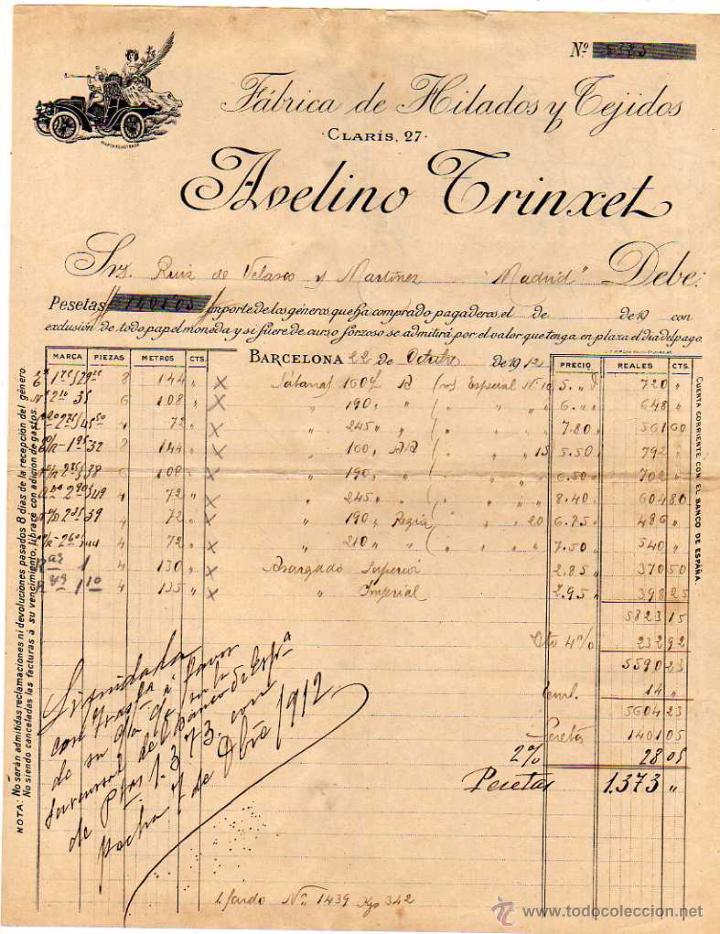 Nº
Fábrica de Hilados y Tejidos
·CLARÍS, 27·
Avelino Trinxet
MARCA REGISTRADA
Srs. Ruiz de Velasco y Martínez "Madrid" Debe:
Pesetas 1401'05 importe de los géneros que ha comprado pagaderos el de de 19 con
exclusión de todo papel moneda y si fuere de curso forzoso se admitirá por el valor que tenga en plaza el día del pago.
MARCA PIEZAS METROS CTS. BARCELONA 22 de Octubre de 1912 PRECIO REALES CTS.
8 144 X 160/ Especial Nº 10 5. 720 "
6 108 X " 190 " " 6. " 648 "
4 72 X " 245 " " 7.80 561 60
8 144 X " 160 " " 15 5.50 792 "
6 108 X " 190 " " 6.50 702 "
4 72 X " 245 " " 8.40 604 80
4 72 X " 190 " Regia " 20 6.75 486 "
4 72 X " 210 " " 7.50 540 "
4 130 X Asargado Superior 2.85 370 50
4 135 X " Imperial 2.95 398 25
5823 15
Dto 4% 232 92
5590 23
Embl. 14 "
5604 23
Pesetas 1401 05
2% 28 05
Pesetas 1.373 "
Liquidada
con
de su favor en la
Sucursal del Banco de Espª
de Ptas 1.373. con
fecha 7 de Dbre 1912
1 fardo Nº 1439 Kgs 342
NOTA: No serán admitidas reclamaciones ni devoluciones pasados 8 días de la recepción del género.
No siendo canceladas las facturas á su vencimiento, libraré con adición de gastos.
CUENTA CORRIENTE CON EL BANCO DE ESPAÑA.
www.todocoleccion.net